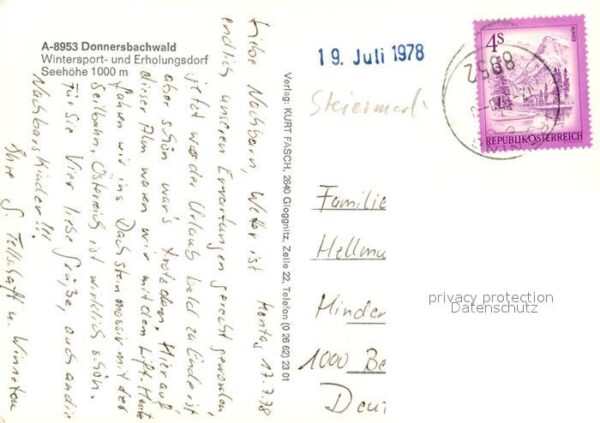 A-8953 Donnersbachwald
Wintersport- und Erholungsdorf
Seehöhe 1000 m
19. Juli 1978
Steiermark
4S
REPUBLIK ÖSTERREICH
8952
Verlag: KURT FASCH, 2640 Gloggnitz, Zeile 22, Telefon (0 26 62) 23 01
Montag 17.7.78
Liebe Nachbarn, Wetter ist
endlich unseren Erwartungen gerecht geworden,
jetzt wo der Urlaub bald zu Ende ist
aber schön war's trotzdem. Hier auf
dieser Alm waren wir mit dem Lift. Heute
fahren wir ins Dachsteinmassiv mit der
Seilbahn. Österreich ist wirklich schön.
Für Sie Vier liebe Grüße, auch an die
Nachbarskinder!!!
Ihre S.
Familie
Hellmu
Hinder
1000 Be
Deut
privacy protection
Datenschutz